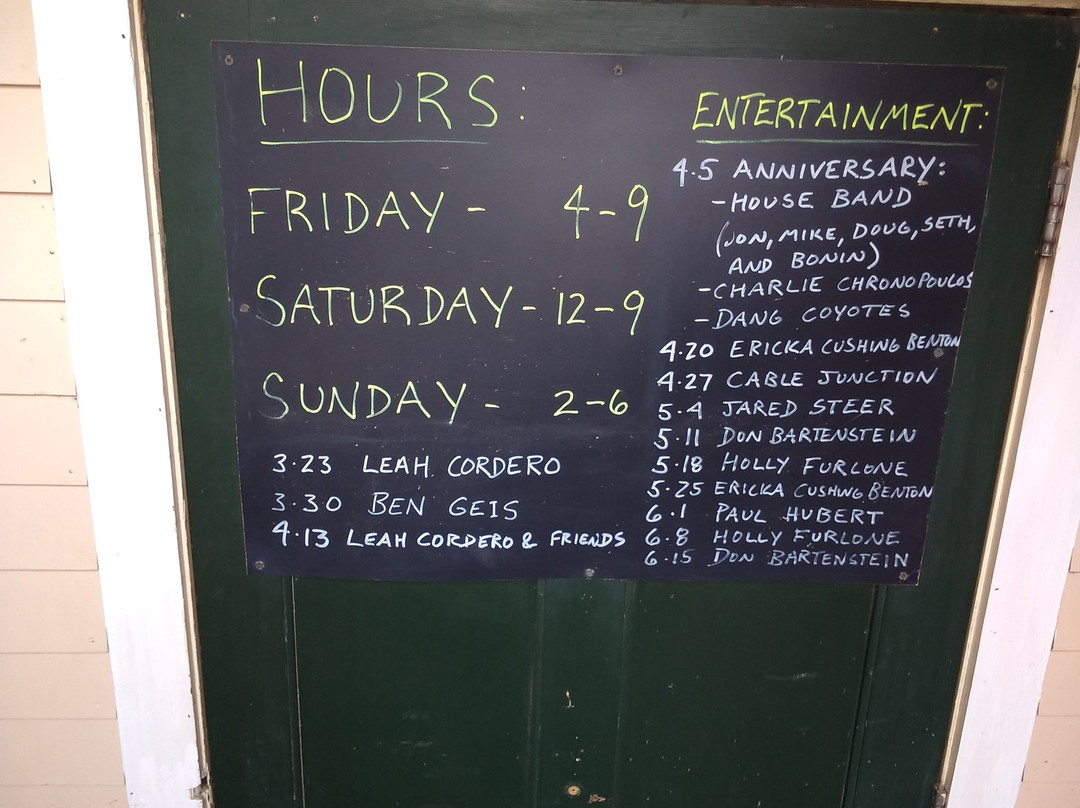 HOURS:
FRIDAY - 4-9
SATURDAY - 12-9
SUNDAY - 2-6
3.23 LEAH CORDERO
3.30 BEN GEIS
4.13 LEAH CORDERO & FRIENDS
ENTERTAINMENT:
4.5 ANNIVERSARY:
-HOUSE BAND
(JON, MIKE, DOUG, SETH,
AND BONIN)
-CHARLIE CHRONOPOULOS
-DANG COYOTES
4.20 ERICKA CUSHING BENTON
4.27 CABLE JUNCTION
5.4 JARED STEER
5.11 DON BARTENSTEIN
5.18 HOLLY FURLONE
5.25 ERICKA CUSHING BENTON
6.1 PAUL HUBERT
6.8 HOLLY FURLONE
6.15 DON BARTENSTEIN